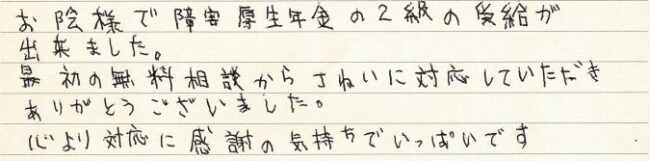 お陰様で障害厚生年金の2級の受給が
出来ました。
最初の無料相談からていねいに対応していただき
ありがとうございました。
心より対応に感謝の気持ちでいっぱいです